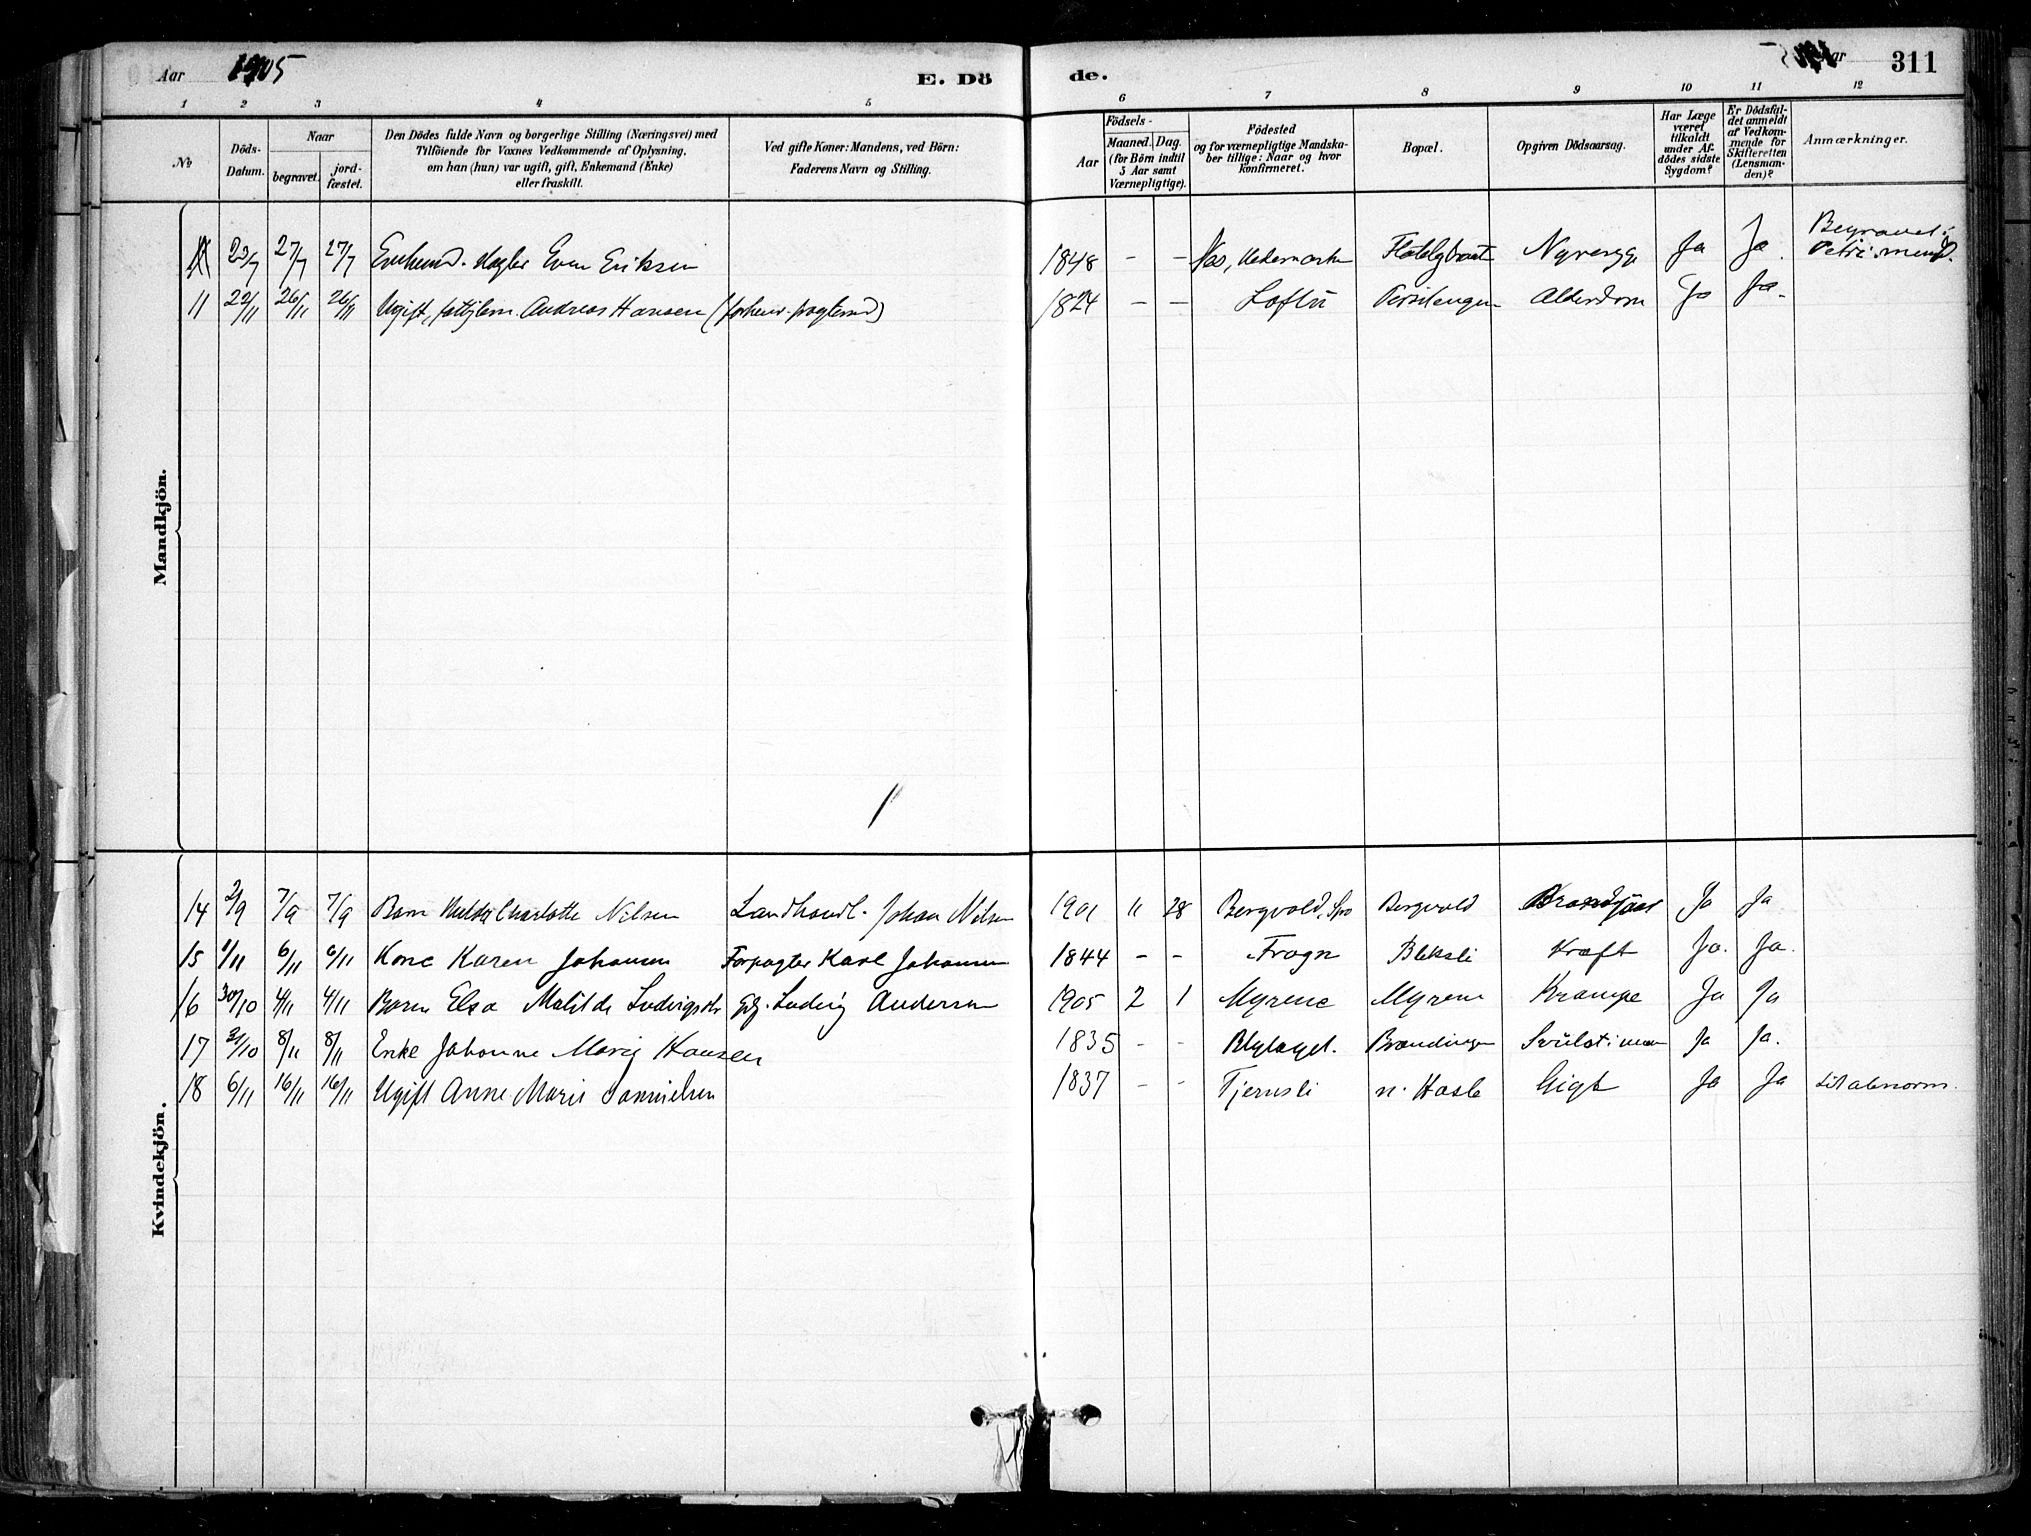 Aar 1905 E. Döde. Aar 311
1 2 3 4 5 6 7 8 9 10 11 12
No
Döds-Datum.
Naar begravet. jordfæstet.
Den Dödes fulde Navn og borgerlige Stilling (Næringsvei) med
Tilföiende for Voxnes Vedkommende af Oplysning,
om han (hun) var ugift, gift, Enkemand (Enke)
eller fraskilt.
Ved gifte Koner: Mandens, ved Börn:
Faderens Navn og Stilling.
Födsels-
Aar Maaned. Dag.
(for Börn indtil 5 Aar samt Værnepligtige).
Födested
og for værnepligtige Mandskaber tillige: Naar og hvor konfirmeret.
Bopæl.
Opgiven Dödsaarsag.
Har Læge været tilkaldt under Afdödes sidste Sygdom?
Er Dödsfaldet anmeldt af Vedkommende for Skifteretten (Lensmanden)?
Anmærkninger.
Mandkjön.
23/7 27/7 27/7 Even Eriksen 1848 - - Nes, Hedemarken Ja Ja. Begravet i
11 22/11 26/11 26/11 Ugift, Andreas Hansen 1824 - - Loftu Alderdom Ja Ja.
Kvindekjön.
14 2/9 7/9 7/9 Barn Hulda Charlotte Nilsen Landhandl. Johan Nilsen 1901 11 28 Bergvold, Bergvold Ja Ja
15 1/11 6/11 6/11 Kone Karen Johansen Forpagter Karl Johansen 1844 - - Frogn Bleksli Kræft Ja. Ja.
16 30/10 4/11 4/11 Barn Elsa Matilde Ludvigsdtr Gdj. Ludvig Andersen 1905 2 1 Myrene Myrene Krampe Ja Ja
17 31/10 8/11 8/11 Enke Johanne Marie Hansen 1835 - - Blylaget. Brændingen Ja Ja.
18 6/11 16/11 16/11 Ugift Anne Marie Samuelsen 1837 - - Tjernsli n. Hasle Gigt Ja Ja Lidt abnorm.